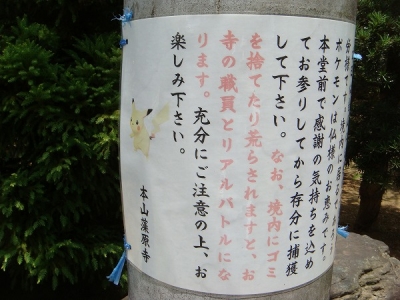 ポケモンは仏様のお恵みです。
本堂前で感謝の気持ちを込め
てお参りしてから存分に捕獲
して下さい。なお、境内にゴミ
を捨てたり荒らされますと、お
寺の職員とリアルバトルにな
ります。充分にご注意の上、お
楽しみ下さい。
本山漢原寺